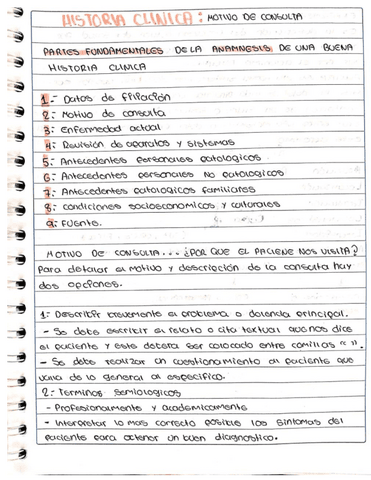 HISTORIA CLINICA: MOTIVO DE CONSULTA
PARTES FUNDAMENTALES DE LA ANAMNESIS DE UNA BUENA
HISTORIA CLINICA
1.- Datos de filiación
2.- Motivo de consulta
3.- enfermedad actual
4.- Revisión de aparatos y sistemas
5.- Antecedentes personales patologicos
6.- Antecedentes personales No patologicos
7.- Antecedentes patologicos familiares
8.- condiciones socioeconomicos y culturales
9.- Fuente.
MOTIVO DE CONSULTA... ¿POR QUE EL PACIENE NOS VISITA?
Para detallar el motivo y descripción de la consulta hay
dos opciones.
1.- Describir brevemente el problema o dolencia principal.
- Se debe escribir el relato o cita textual que nos dice
el paciente y este debera ser colocado entre comillas " ".
- Se debe realizar un cuestionamiento al paciente que
vaya de lo general al especifico.
2.- Terminos semiologicos
- Profesionalmente y academicamente
- Interpretar lo mas correcto posible los sintomas del
paciente para obtener un buen diagnostico.